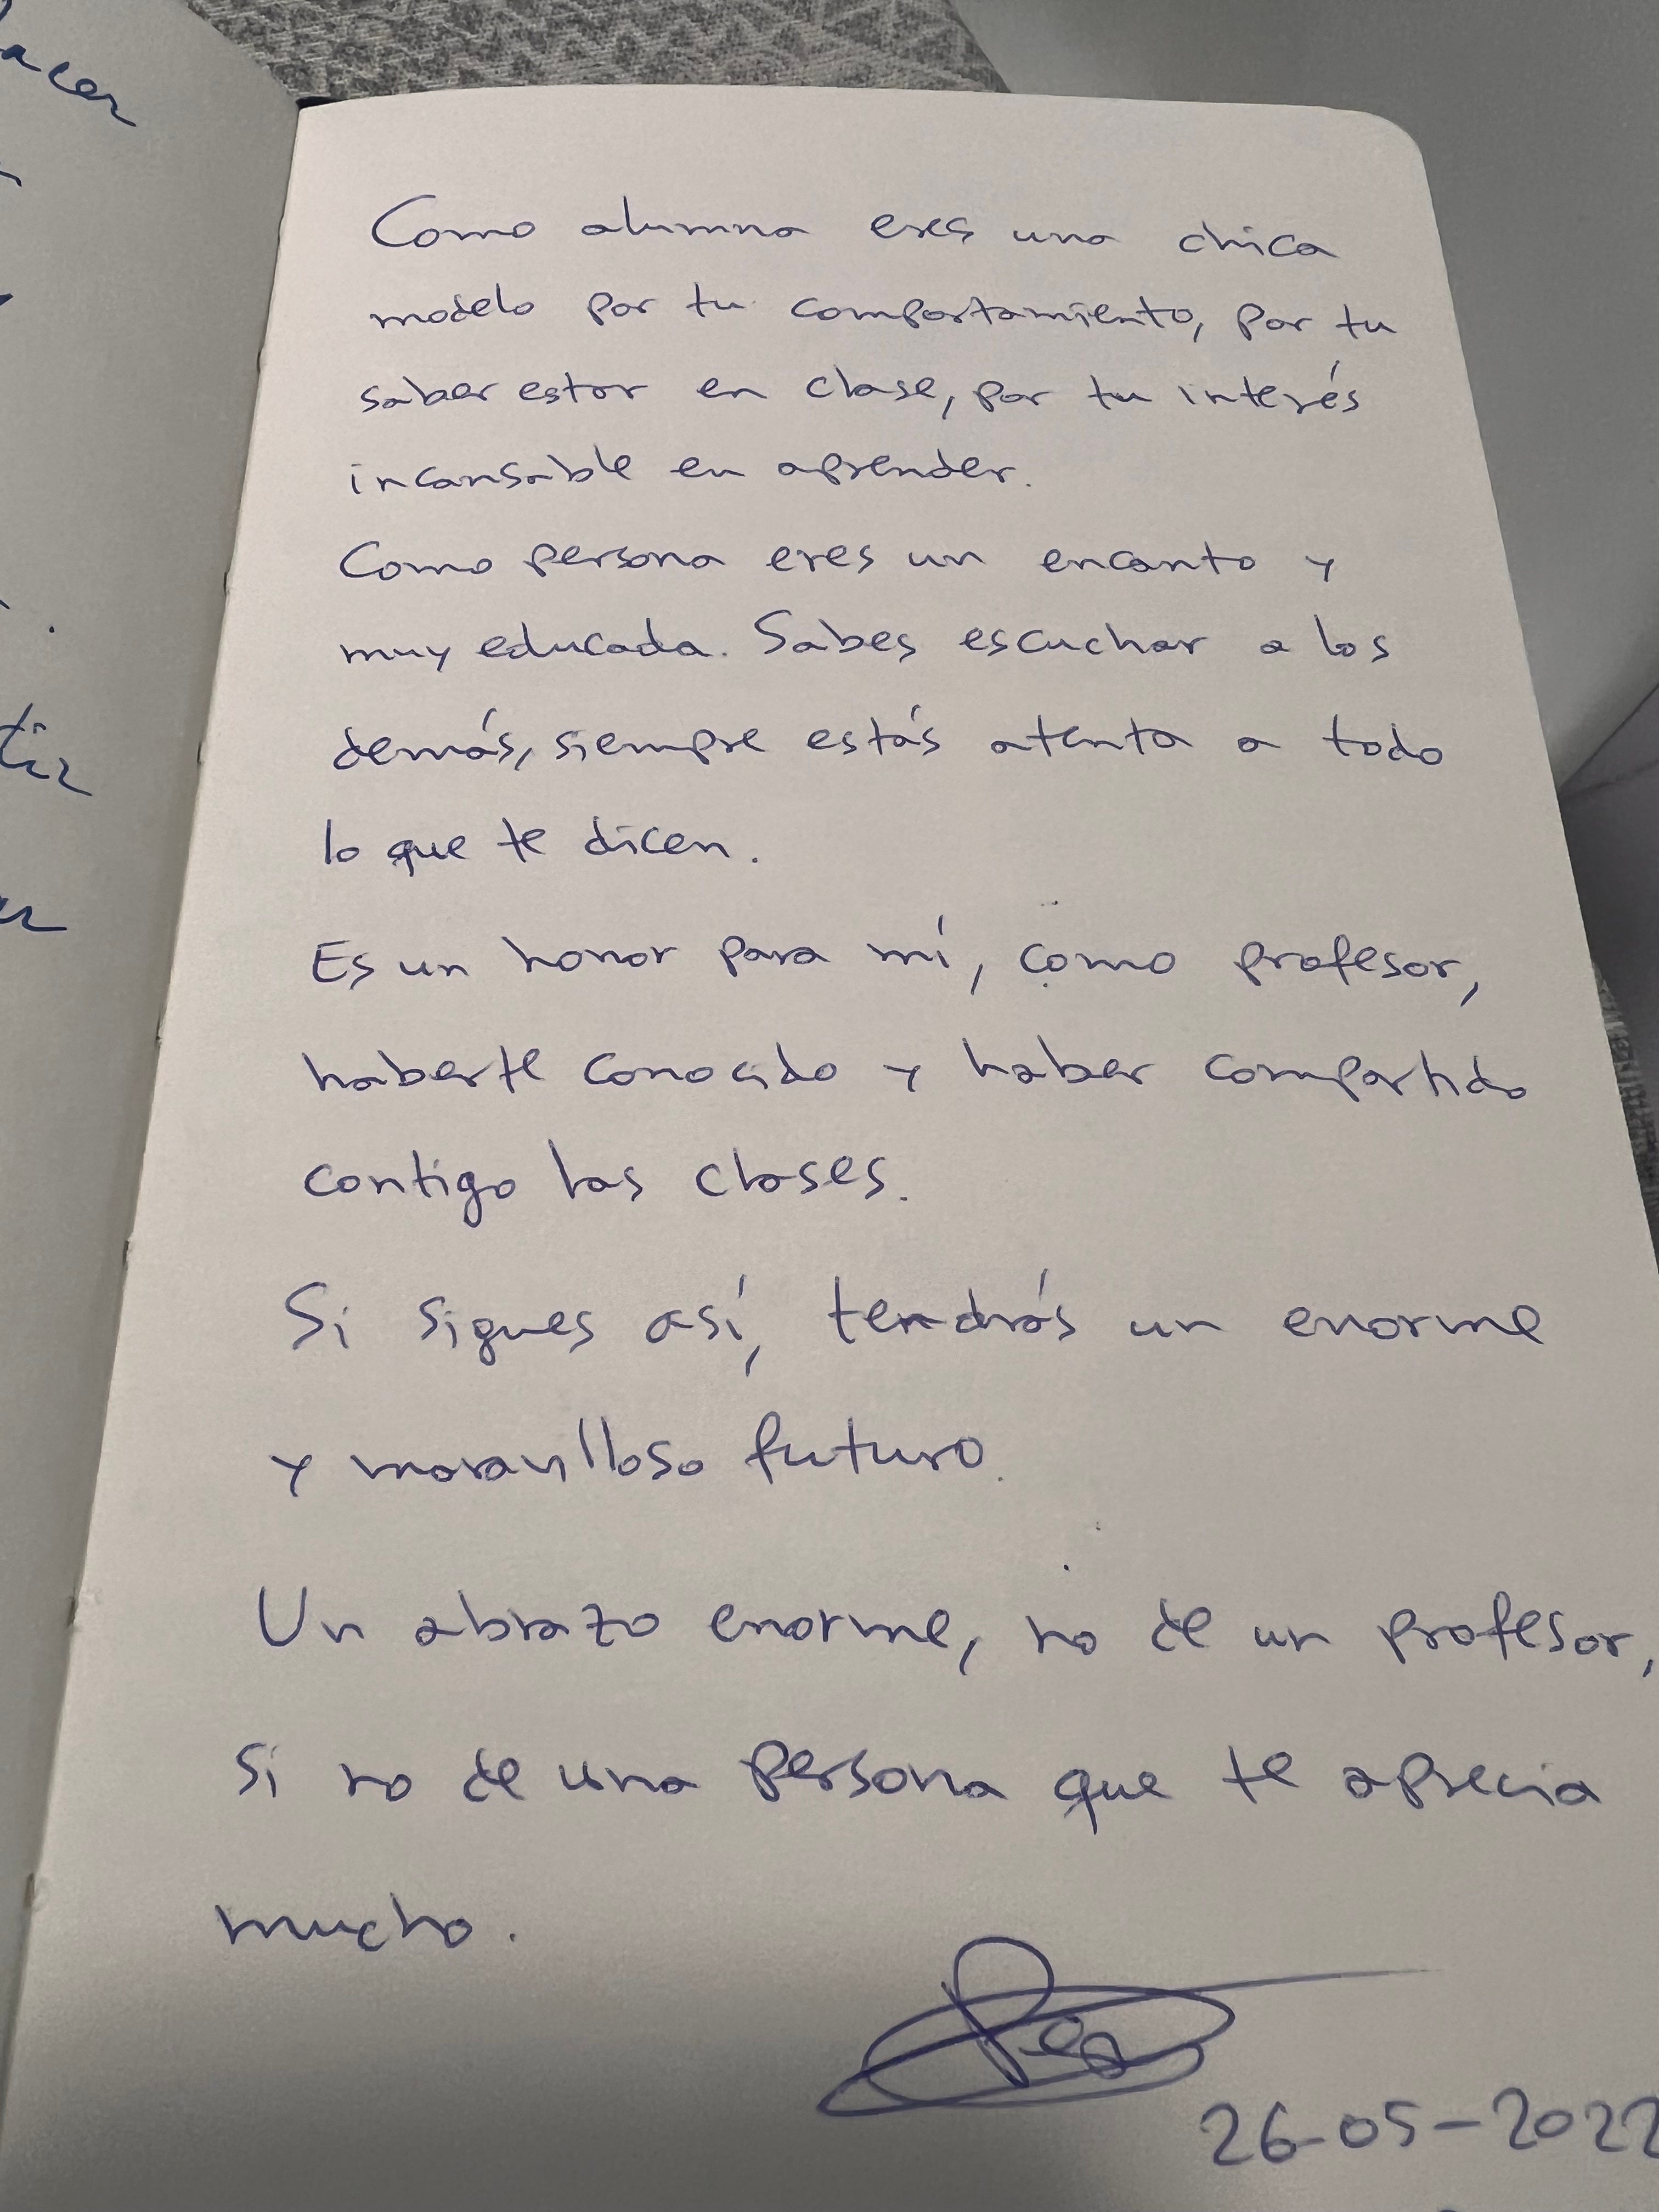 Como alumna eres una chica
modelo por tu comportamiento, por tu
saber estar en clase, por tu interés
incansable en aprender.
Como persona eres un encanto y
muy educada. Sabes escuchar a los
demás, siempre estás atenta a todo
lo que te dicen.
Es un honor para mí, como profesor,
haberte conocido y haber compartido
contigo las clases.
Si sigues así, tendrás un enorme
y maravilloso futuro.
Un abrazo enorme, no de un profesor,
si no de una persona que te aprecia
mucho.
26-05-2022